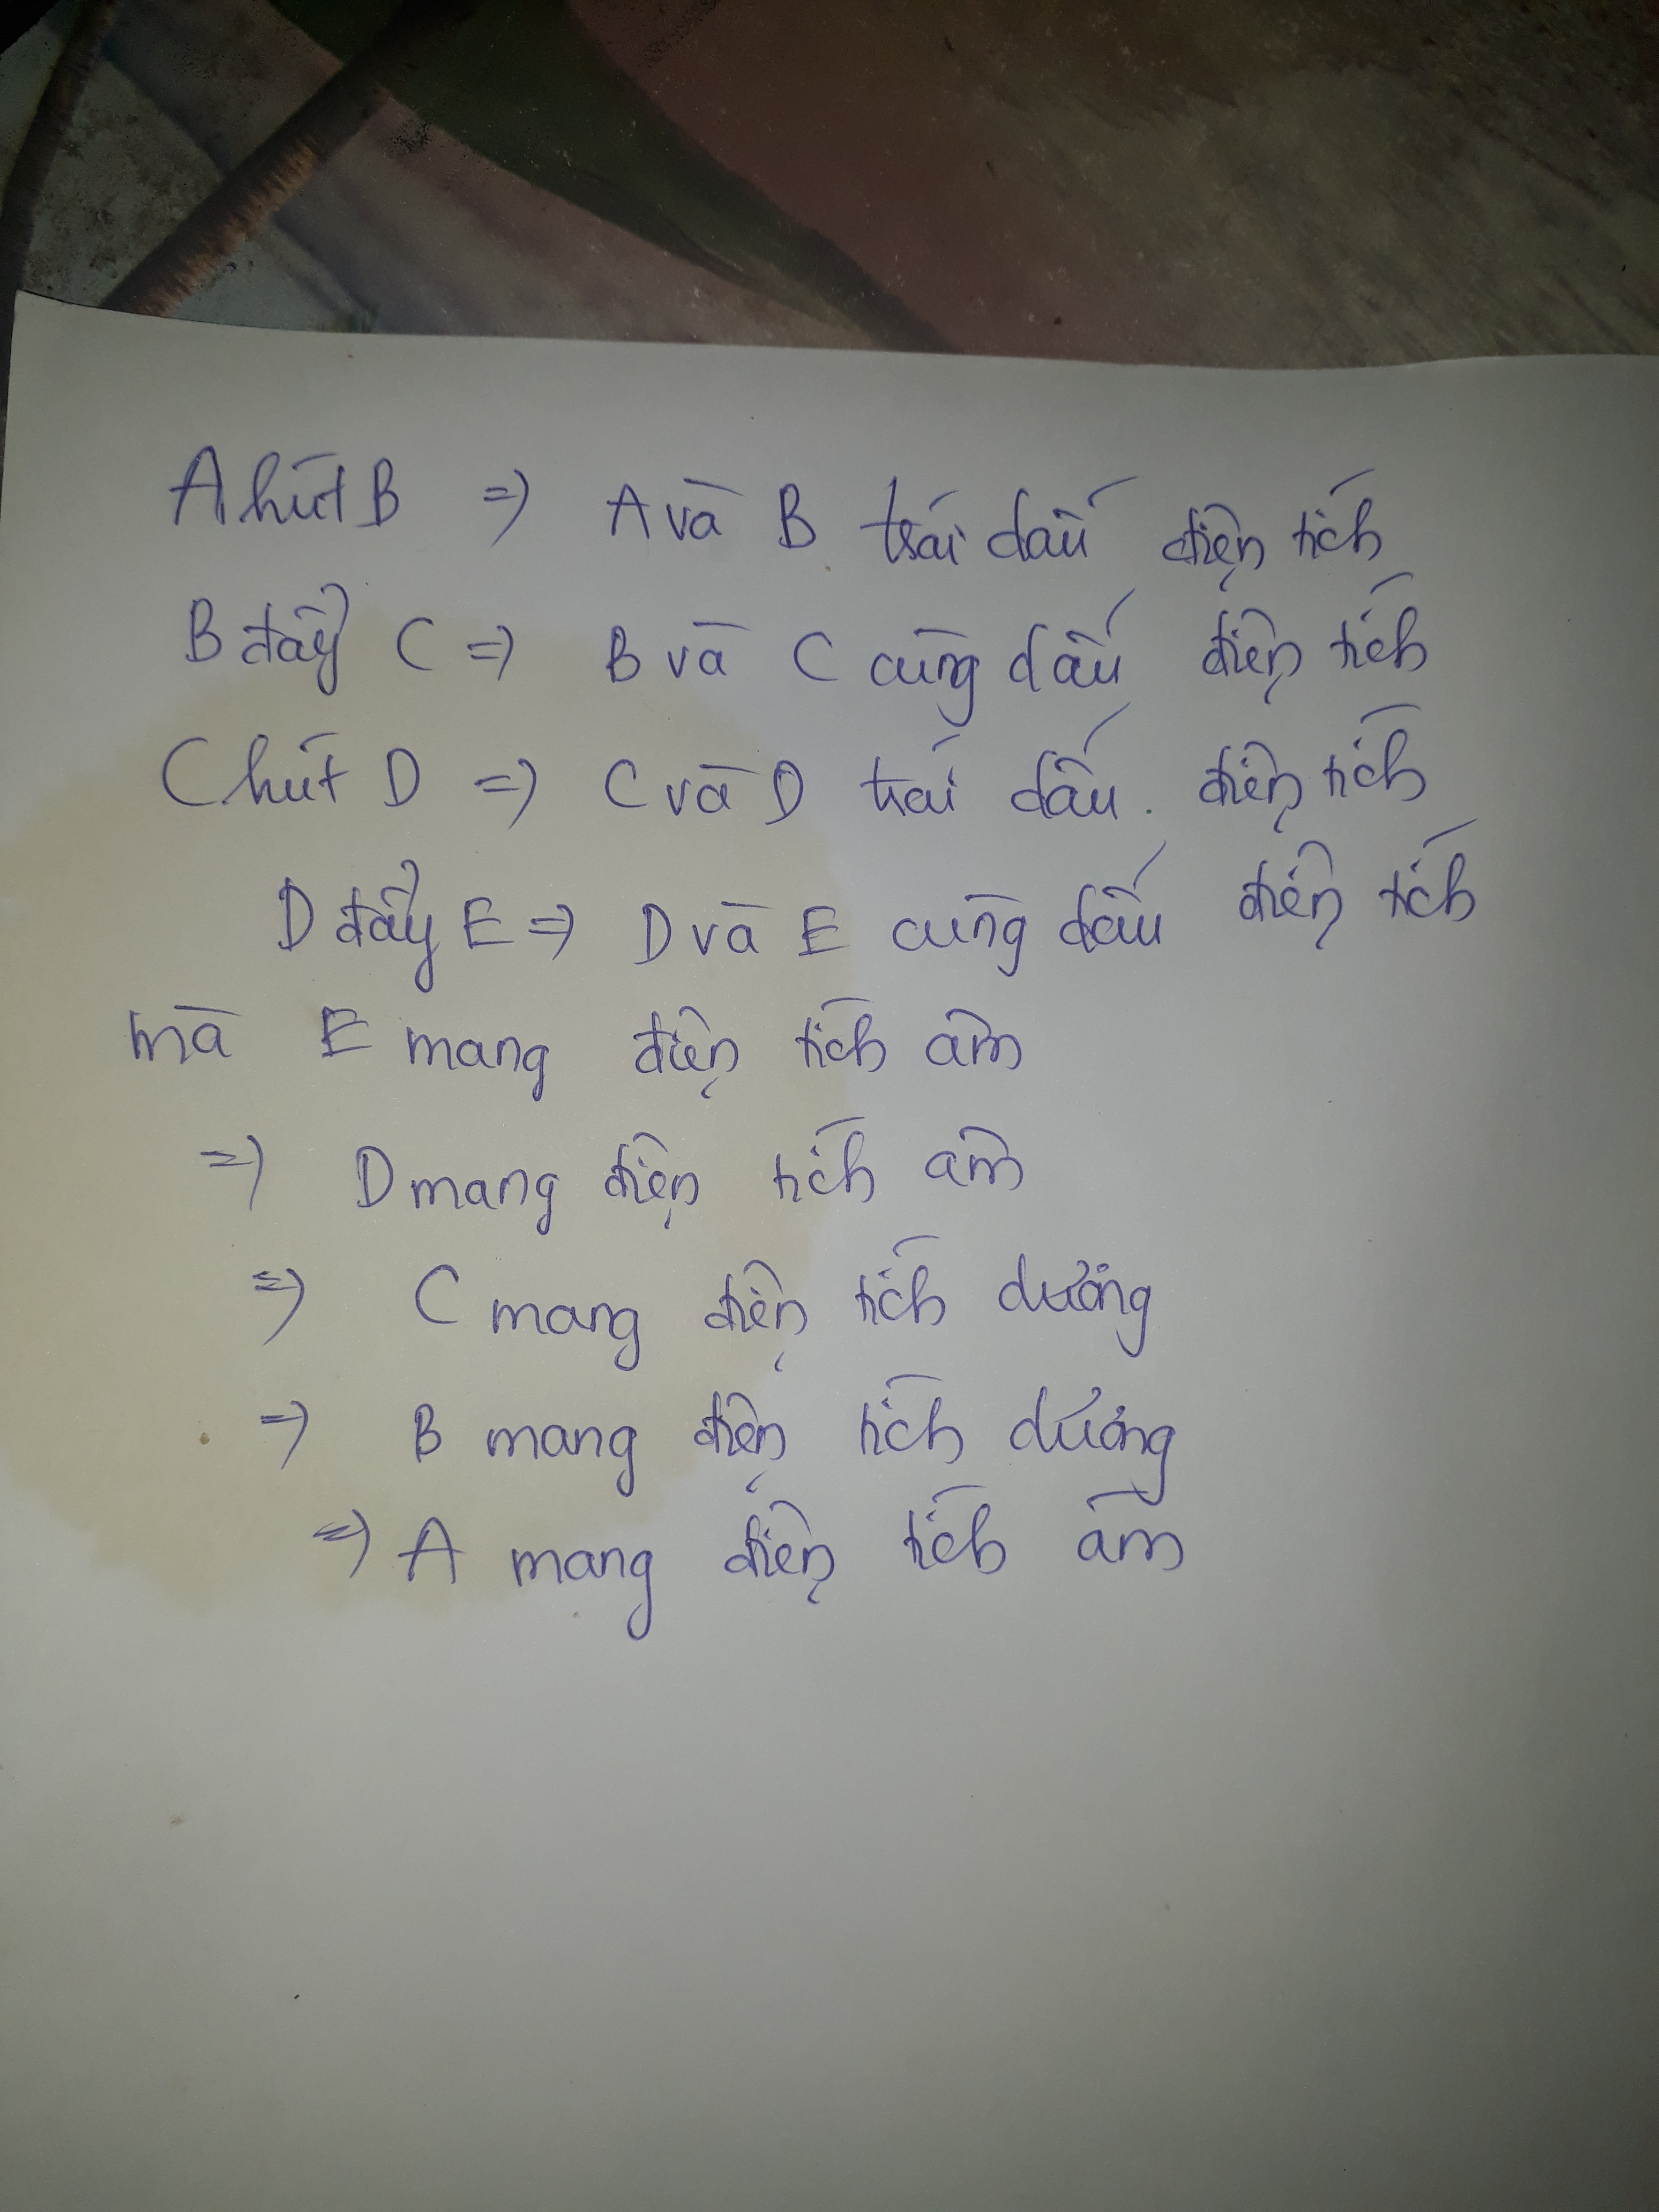 A hút B => A và B trái dấu điện tích
B đẩy C => B và C cùng dấu điện tích
C hút D => C và D trái dấu. điện tích
D đẩy E => D và E cùng dấu điện tích
mà E mang điện tích âm
=> D mang điện tích âm
=> C mang điện tích dương
=> B mang điện tích dương
=> A mang điện tích âm